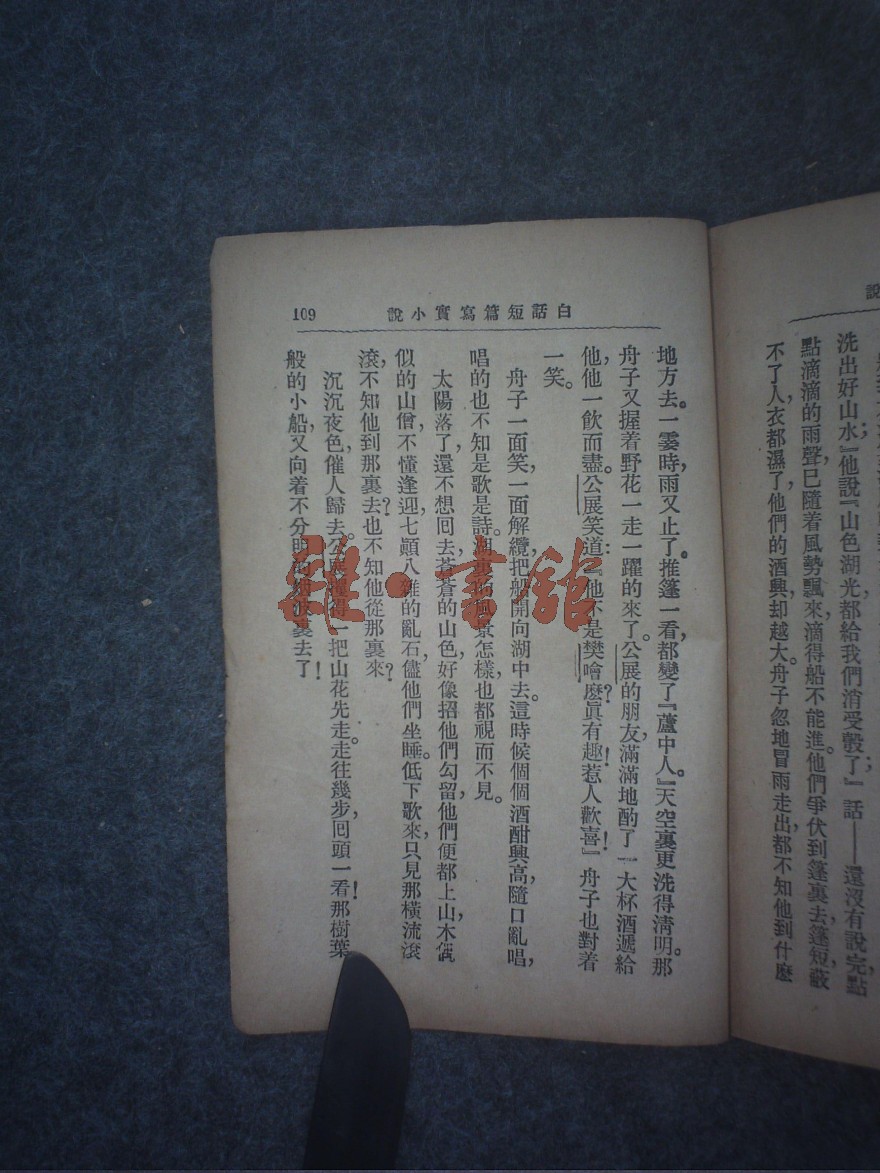 說
洗出好山水；』他說『山色湖光都給我們消受彀了；』話——還沒有說完，點
點滴滴的雨聲，已隨着風勢飄來，滴得船不能進。他們爭伏到篷裏去，篷短蔽
不了人，衣都濕了，他們的酒興却越大。舟子忽地冒雨走出，都不知他到什麼
白話短篇寫實小說
109
地方去。一霎時，雨又止了。推篷一看，都變了『蘆中人。』天空裏更洗得淸明，那
舟子又握着野花一走一躍的來了。公展的朋友，滿滿地酌了一大杯酒，遞給
他，他一飲而盡。公展笑道：『他不是樊噲麽？眞有趣！惹人歡喜！』舟子也對着
一笑。
舟子一面笑，一面解纜，把船開向湖中去。這時候個個酒酣興高，隨口亂唱，
唱的也不知是歌是詩。湖裏的風景怎樣，也都視而不見。
太陽落了，還不想回去，蒼蒼的山色，好像招他們勾留，他們便都上山，木偶
似的山僧，不懂逢迎，七顚八雜的亂石，儘他們坐睡。低下歌來，只見那橫流滾
滾，不知他到那裏去？也不知他從那裏來？
沉沉夜色，催人歸去。公展握得一把山花先走。走往幾步，囘頭一看！那樹葉
般的小船，又向着不分明的烟波裏去了！
雜·書館